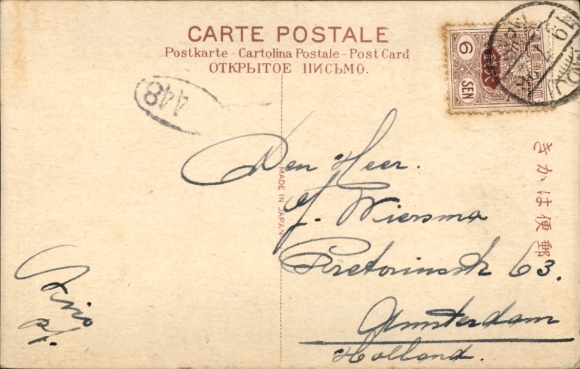 CARTE POSTALE
Postkarte - Cartolina Postale - Post Card
ОТКРЫТОЕ ПИСЬМО.
448
6
SEN
Den Heer.
J. Wiersma
Pretoriusstr 63.
Amsterdam
Holland.
MADE IN JAPAN
きかは便郵